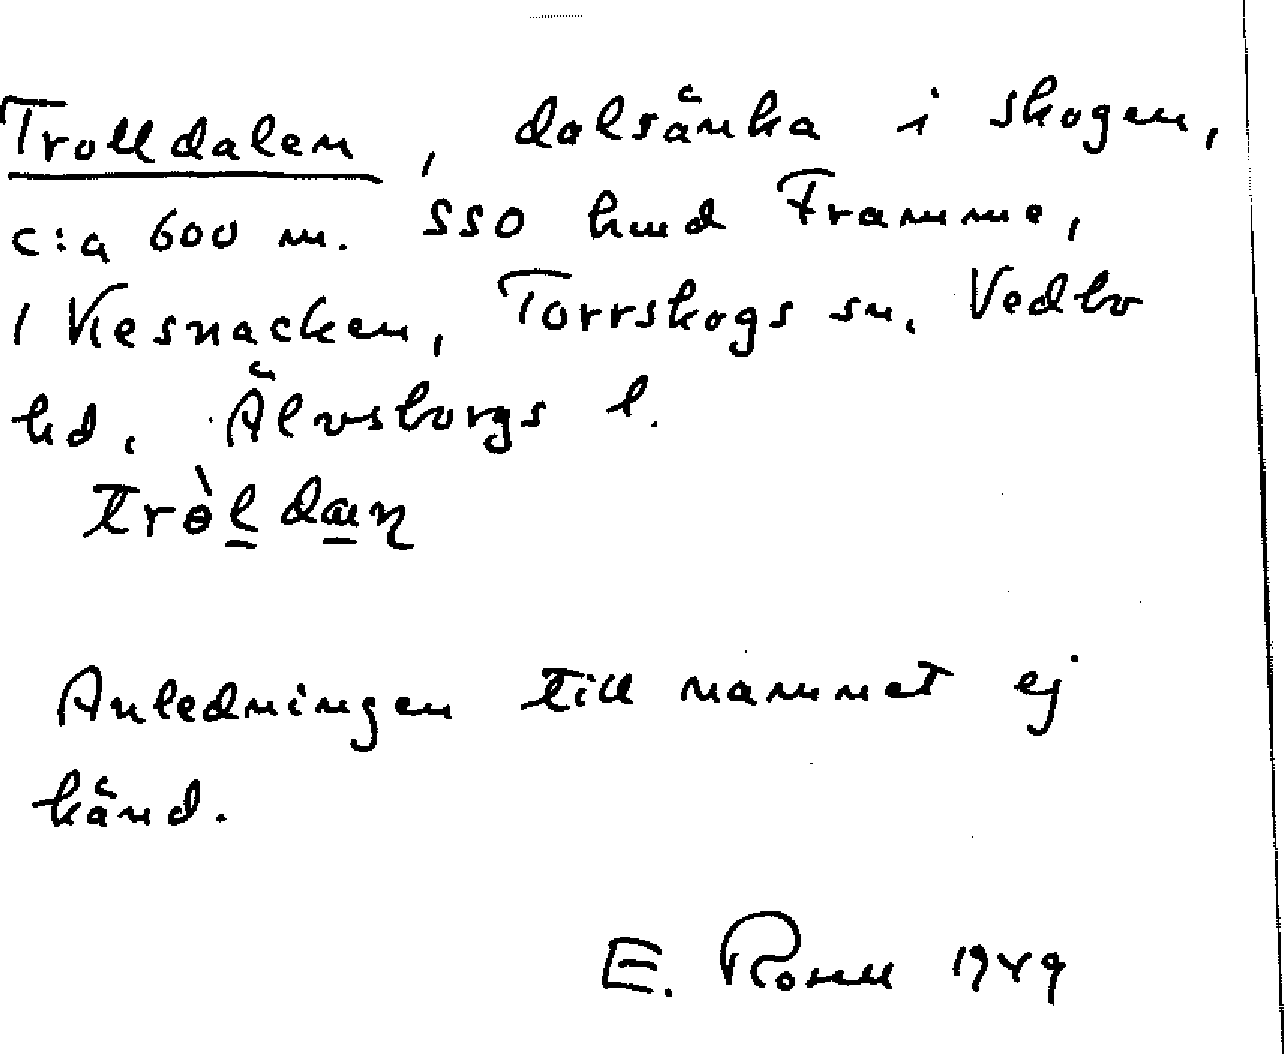 Trolldalen, dalsänka i skogen,
c:a 600 m. SSO lund Framme,
i Kesnacken, Torrskogs sn. Vedbo
hd, Älvsborgs l.
tròldan
Anledningen till namnet ej
känd.
E. 1949